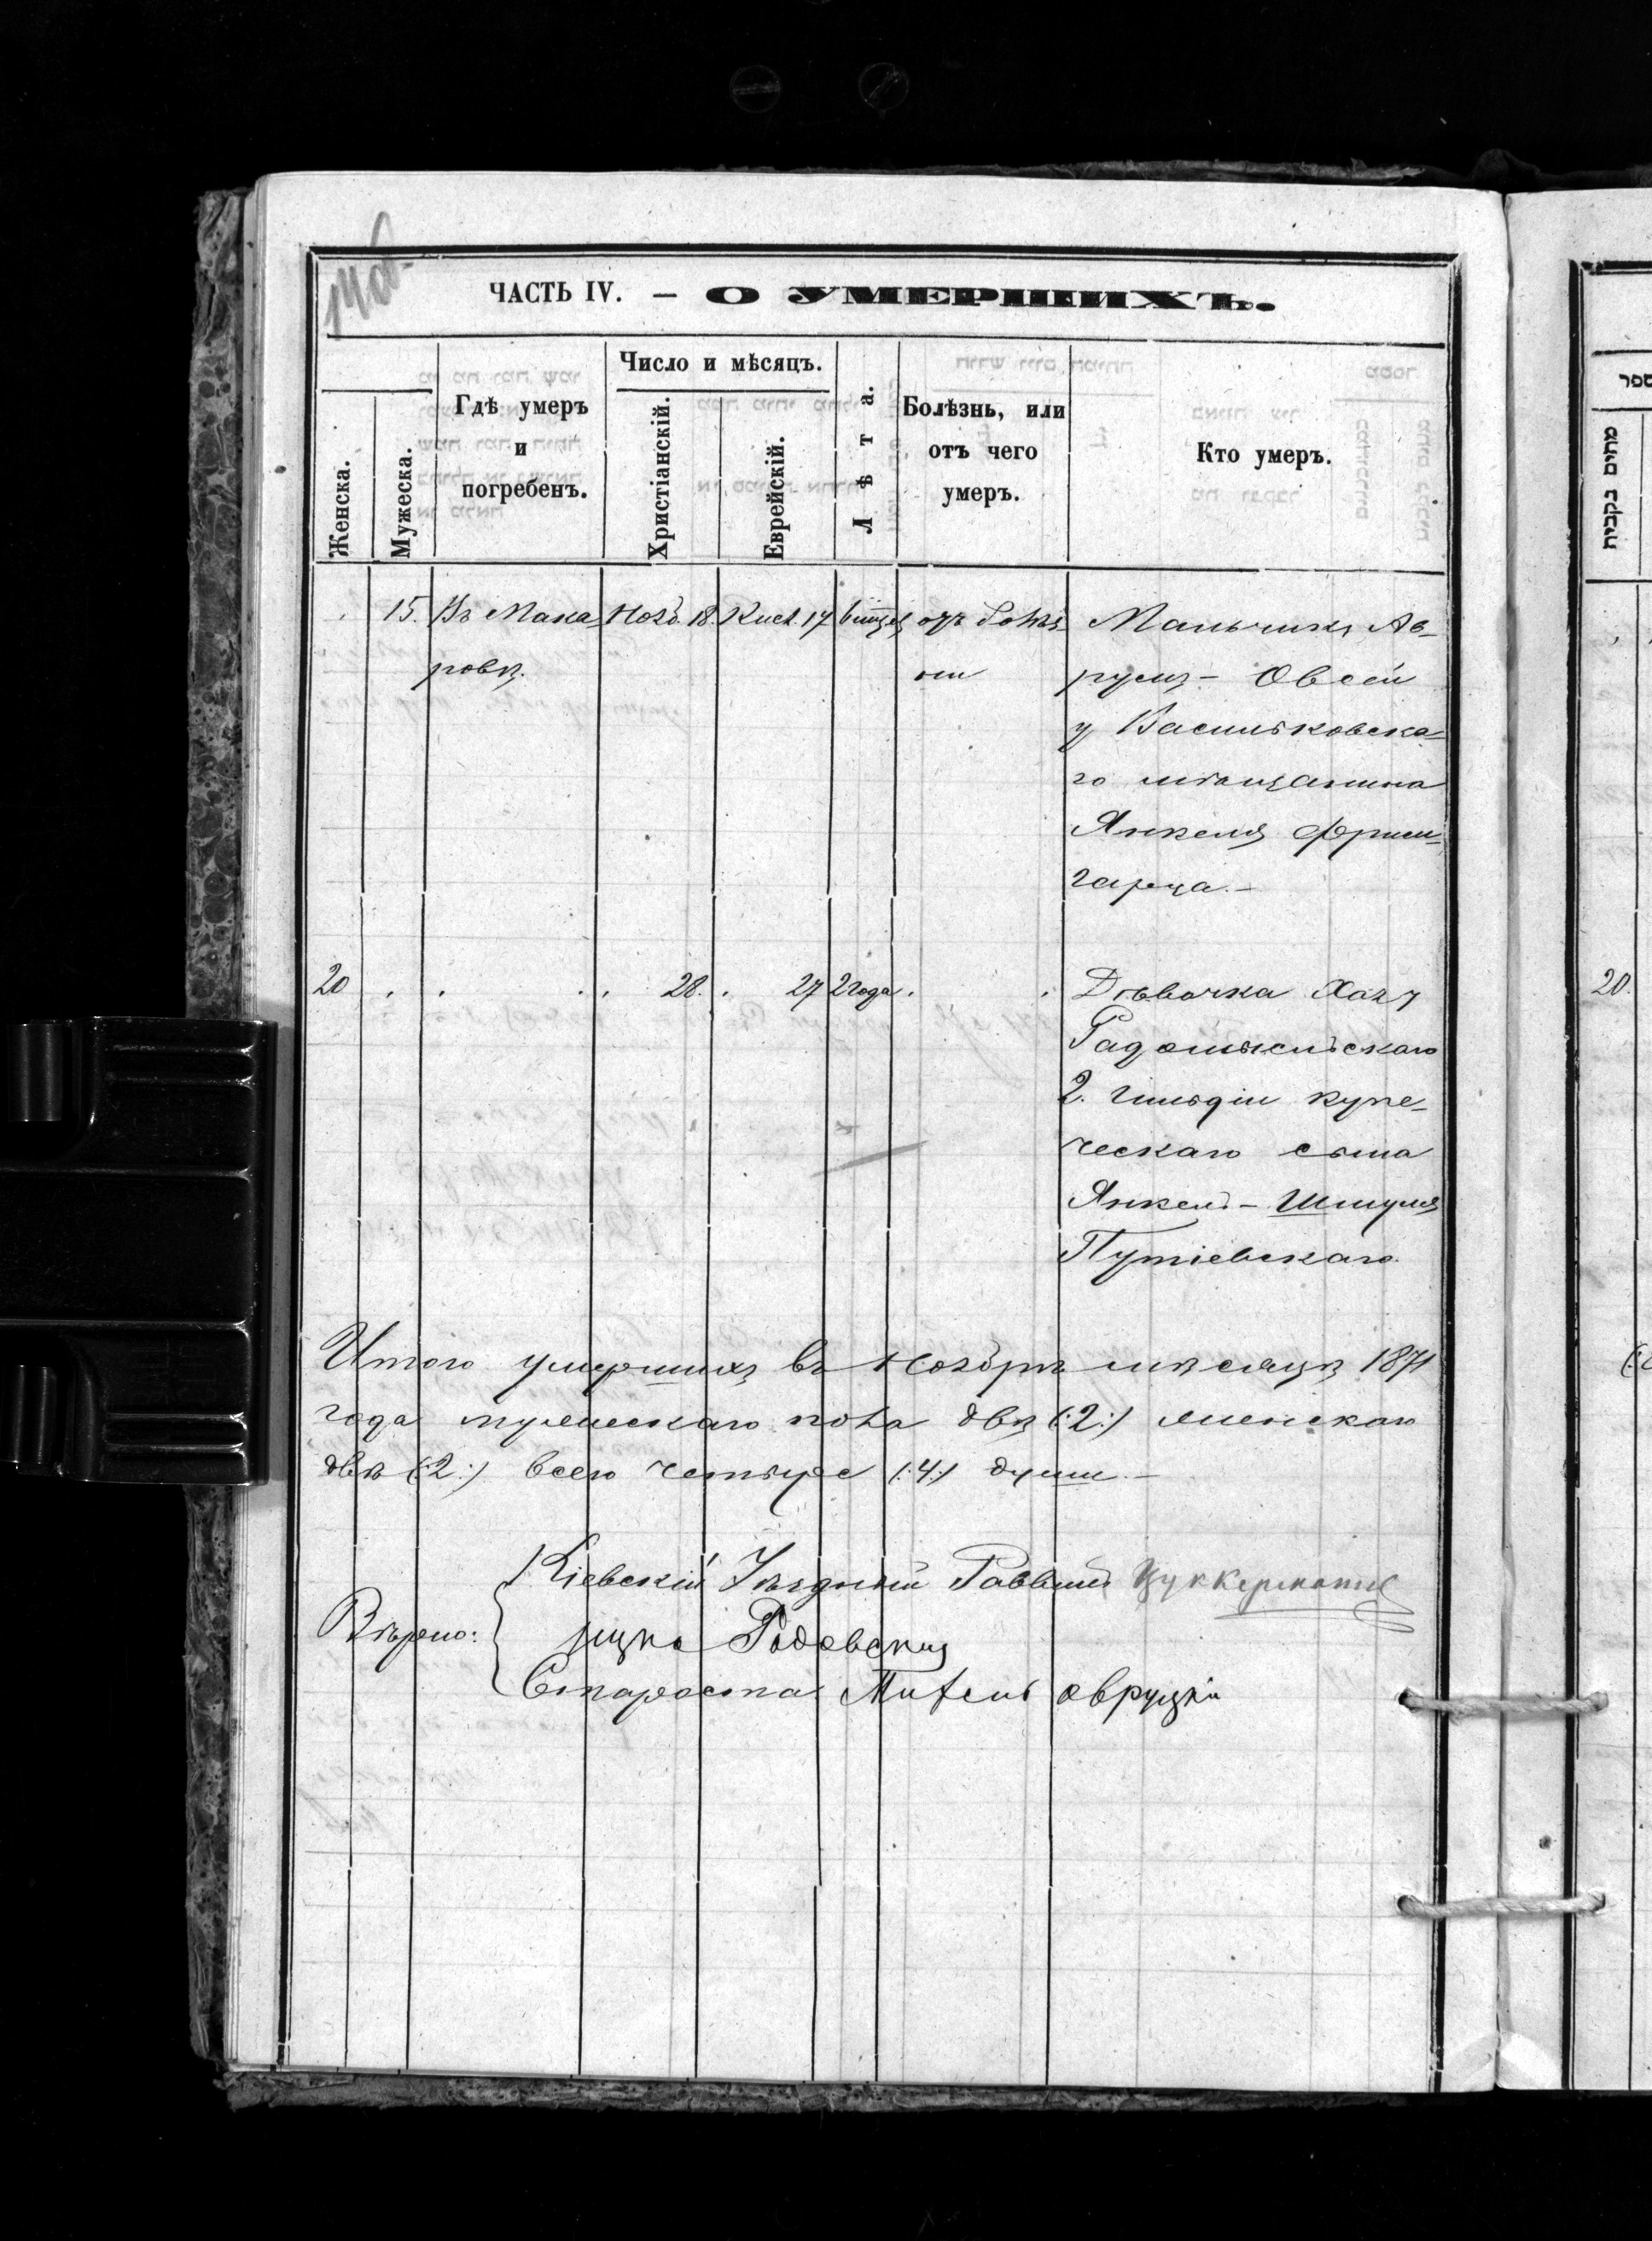 14об
ЧАСТЬ IV. — О УМЕРШИХЪ.
Женска.
Мужеска.
Гдѣ умеръ
и
погребенъ.
Число и мѣсяцъ.
Христіанскій.
Еврейскій.
Лѣта.
Болѣзнь, или
отъ чего
умеръ.
Кто умеръ.
15. Въ Мака Нояб. 18. Кисл. 17
ровѣ.
Мальчикъ Ав-
румъ - Овсей
у Васильковска-
го мѣщанина
Янкеля
20 . . . . 28. . 27 2 года . .
Дѣвочка
Радомысльскаго
2. гильдіи купе-
ческаго сына
Янкель - Шмуля
Путіевскаго.
Итого умершихъ въ Ноябрѣ мѣсяцѣ 1871
года мужескаго пола два (:2:) женскаго
двѣ (:2:) всего четыре (:4:) души. —
Вѣрно:
Кіевскій Уѣздный Раввинъ Цуккерманъ
Староста Овруцкій
מתים נקבות
20.